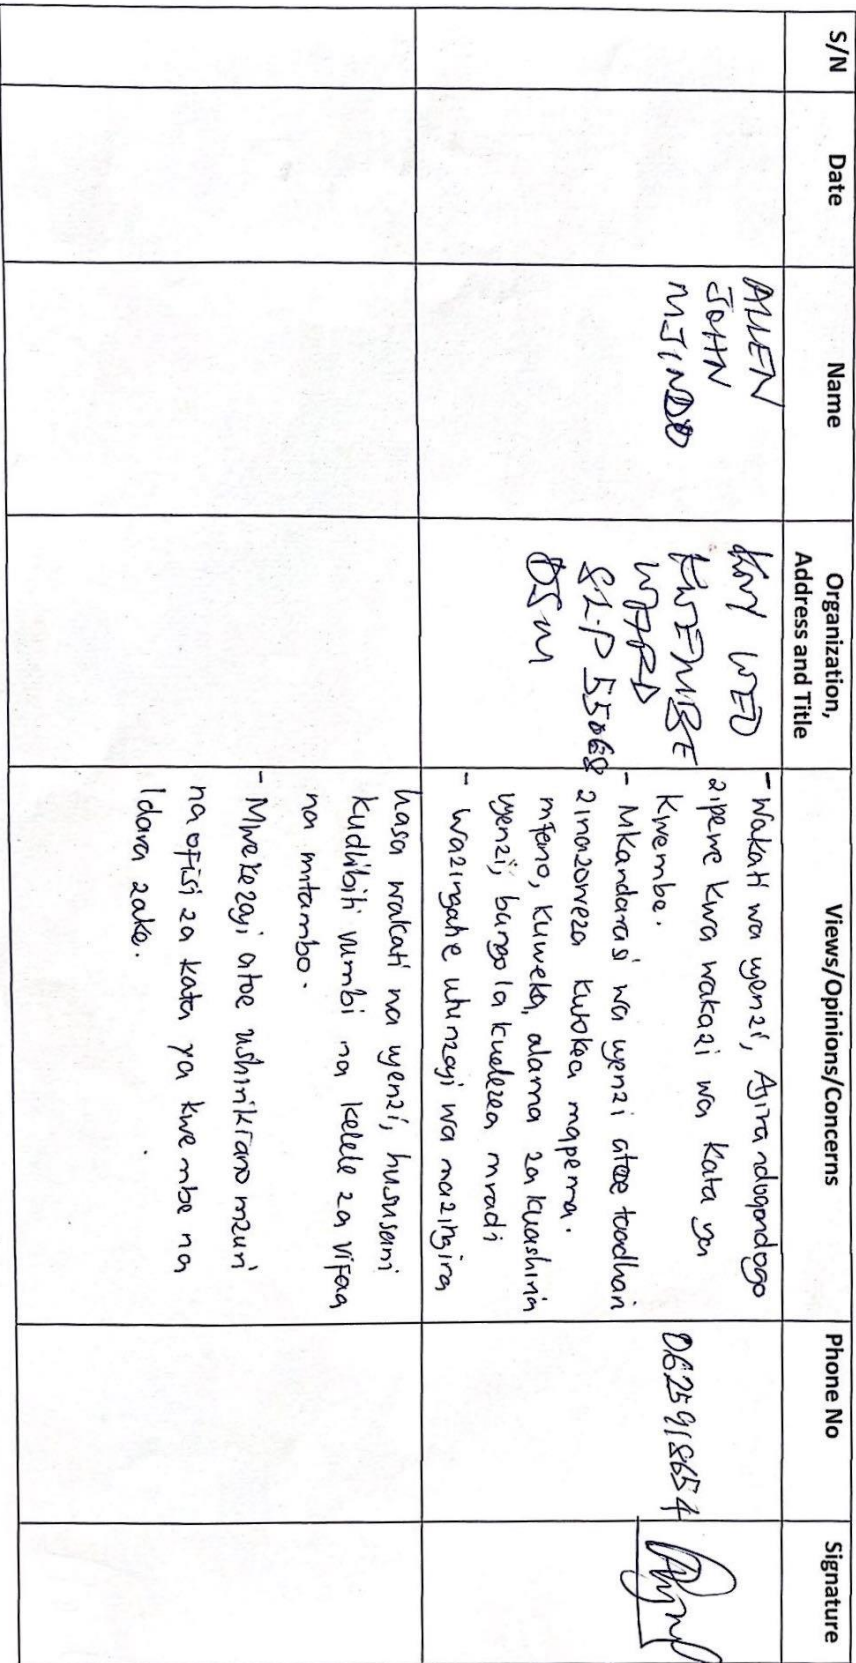 S/N
Date
Name
Organization,
Address and Title
Views/Opinions/Concerns
Phone No
Signature
ALLEN
JOHN
MJINDO
WEO
KWEMBE
WARD
S.L.P 55068
DSM
- Wakati wa ujenzi, Ajira ndogondogo
zipewe kwa wakazi wa Kata ya
Kwembe.
- Mkandarasi wa ujenzi atoe taadhari
zinazoweza kutokea mapema.
mfano, kuweka, alama za kuashiria
ujenzi, bango la kuelezea mradi
- Wazingatie utunzaji wa mazingira
hasa wakati na ujenzi, hususani
kudhibiti vumbi na kelele za vifaa
na mitambo.
- Mwekezaji atoe ushirikiano mzuri
na ofisi za Kata ya Kwembe na
Idara zake.
0625918654